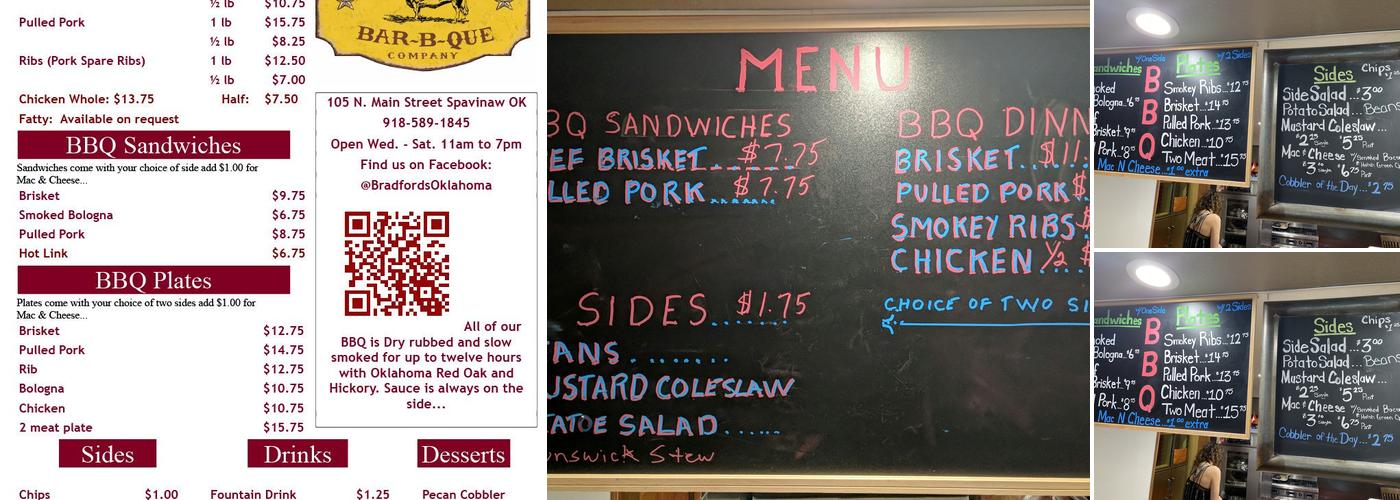 ½ lb $10.75
Pulled Pork 1 lb $15.75
½ lb $8.25
Ribs (Pork Spare Ribs) 1 lb $12.50
½ lb $7.00
Chicken Whole: $13.75 Half: $7.50
Fatty: Available on request
BBQ Sandwiches
Sandwiches come with your choice of side add $1.00 for
Mac & Cheese...
Brisket $9.75
Smoked Bologna $6.75
Pulled Pork $8.75
Hot Link $6.75
BBQ Plates
Plates come with your choice of two sides add $1.00 for
Mac & Cheese...
Brisket $12.75
Pulled Pork $14.75
Rib $12.75
Bologna $10.75
Chicken $10.75
2 meat plate $15.75
Sides
Chips $1.00
Drinks
Fountain Drink $1.25
Desserts
Pecan Cobbler
BAR-B-QUE
COMPANY
105 N. Main Street Spavinaw OK
918-589-1845
Open Wed. - Sat. 11am to 7pm
Find us on Facebook:
@BradfordsOklahoma
All of our
BBQ is Dry rubbed and slow
smoked for up to twelve hours
with Oklahoma Red Oak and
Hickory. Sauce is always on the
side...
MENU
BQ SANDWICHES
EF BRISKET...$7.75
LLED PORK...$7.75
SIDES...$1.75
ANS.......
USTARD COLESLAW
ATOE SALAD.....
nswick Stew
BBQ DINN
BRISKET...$11.
PULLED PORK $
SMOKEY RIBS
CHICKEN ½ $
CHOICE OF TWO SI
andwiches w/ One Side
oked
Bologna $6 75
Brisket 9 75
Pork $8 75
BBQ
Plates w/ 2 Sides
Smokey Ribs...$12 75
Brisket...$14 75
Pulled Pork...$13 75
Chicken...$10 75
Two Meat...$15 75
Mac N Cheese...$1 00 extra
Sides
Chips
Side Salad...$3 00
Potato Salad...Beans
Mustard Coleslaw...
$2 25 Single $5 25 Pint
Mac & Cheese
$3 Single $6 75 Pint
Cobbler of the Day...$2 75
andwiches w/ One Side
oked
Bologna $6 75
Brisket 9 75
Pork $8 75
BBQ
Plates w/ 2 Sides
Smokey Ribs...$12 75
Brisket...$14 75
Pulled Pork...$13 75
Chicken...$10 75
Two Meat...$15 75
Mac N Cheese...$1 00 extra
Sides
Chips
Side Salad...$3 00
Potato Salad...Beans
Mustard Coleslaw...
$2 25 Single $5 25 Pint
Mac & Cheese
$3 Single $6 75 Pint
Cobbler of the Day...$2 75